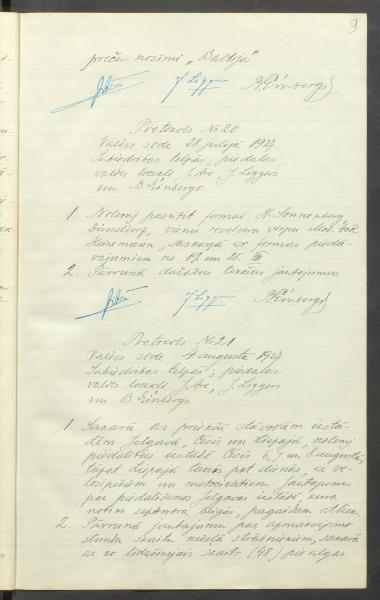 9
preču nozīmi „Baltija"
J. Liggers B. Einbergs
Protokols № 20.
Valdes sēde 28. jūlijā 1927
Sabiedrības telpās; piedalās
valdes locekļi J. Are, J. Liggers
un B. Einbergs.
1 Nolemj pasūtīt firmai H. Sonnenberg
Düsseldorf, vienu revolvera virpu Mod.
Heinemann, saskaņā ar firmas piedā-
vājumiem no 19. un 21. III
2. Pārrunā dažādus tekošus jautājumus
J. Liggers B. Einbergs
Protokols № 21
Valdes sēde 4 augustā 1927.
Sabiedrības telpās; piedalās
valdes locekļi J. Are, J. Liggers
un B. Einbergs.
1. Sakarā ar priekšā stāvošām izstā-
dēm Jelgavā, Cēsīs un Liepājā, nolemj
piedalīties izstādē Cēsīs 6, 7 un 8 augustā,
tāpat Liepājā tanīs pat dienās, ar ve-
losipēdiem un motocikletiem. Jautājumu
par piedalīšanos Jelgavas izstādē, kura
notiks septembra beigās, pagaidām atliek.
2. Pārrunā jautājumu par apmaksājamo
stundu skaitu nedēļā strādniekiem, sakarā
ar ko līdzšinējais skaits (48) pie algas